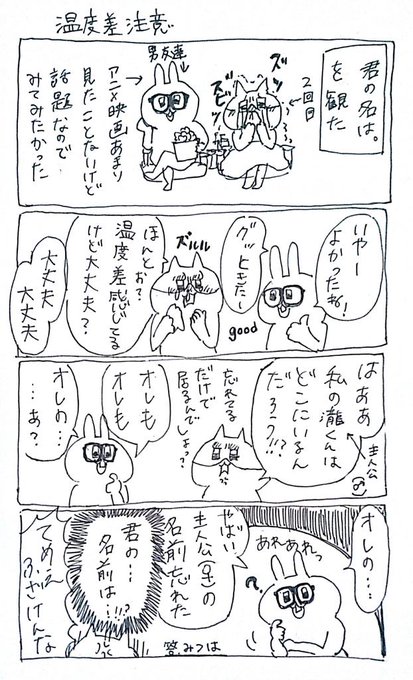 温度差注意
君の名は。
を観た
2回目
ズッ
ズビッ
男友達
アニメ映画あまり
見たことないけど
話題なので
みてみたかった
いやー
よかったね!
グッときたー
good
ズルルル
ほんとぉ?
温度差感じてる
けど大丈夫?
大丈夫
大丈夫
はぁぁ
私の瀧くんは
どこにいるん
だろう!!?
主人公♂
忘れてる
だけで
居るんでしょっ?
オレも
オレも
オレの…
…あ?
オレの…
あれあれっ
?
やばい
主人公(♀)の
名前忘れた
君の…
名前は…!!?
答 みつは
てめぇ
ふざけんな